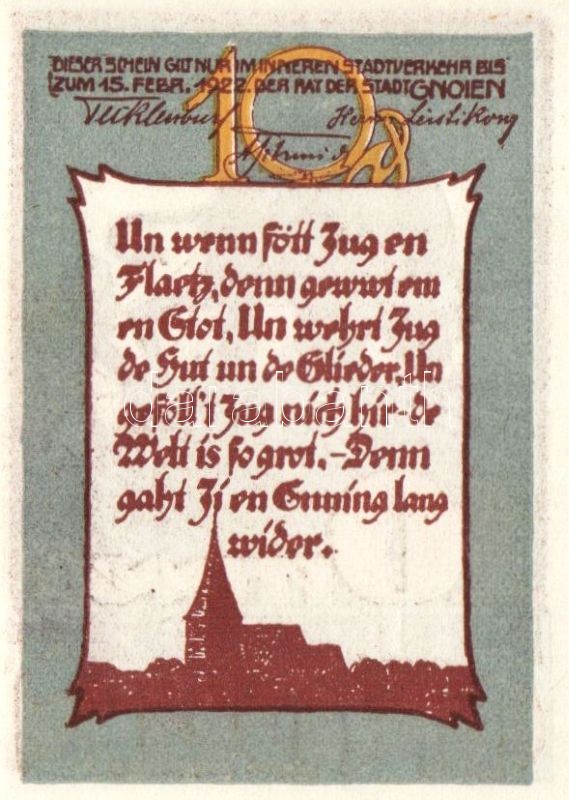 DIESER SCHEIN GILT NUR IM INNEREN STADTVERKEHR BIS
ZUM 15. FEBR. 1922. DER RAT DER STADT GNOIEN
10₰
Un wenn fött Jug en
Flaetz, denn gewwt em
en Stot, Un wehrt Jug
de Hut un de Glieder, Un
geföll't Jug nich hir - de
Welt is so grot. - Denn
gaht Ji en Enning lang
wider.
darabanth